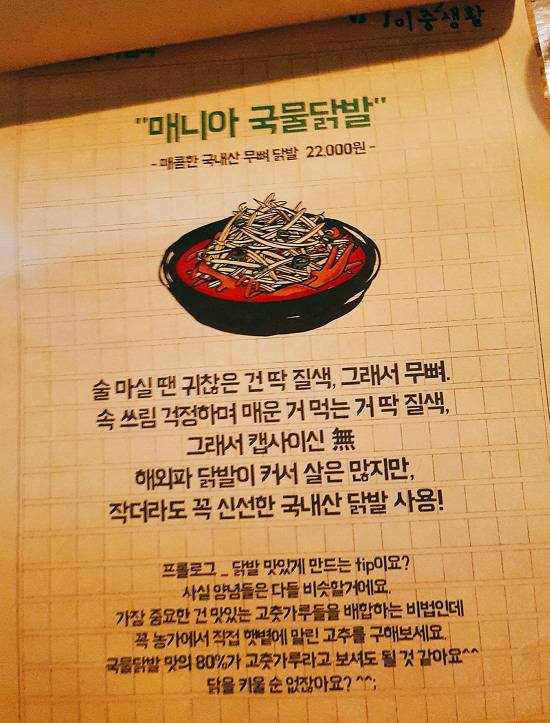 이중생활
"매니아 국물닭발"
- 매콤한 국내산 무뼈 닭발 22,000원 -
술 마실 땐 귀찮은 건 딱 질색, 그래서 무뼈.
속 쓰림 걱정하며 매운 거 먹는 거 딱 질색,
그래서 캡사이신 無
해외파 닭발이 커서 살은 많지만,
작더라도 꼭 신선한 국내산 닭발 사용!
프롤로그 _ 닭발 맛있게 만드는 tip이요?
사실 양념들은 다들 비슷할거에요.
가장 중요한 건 맛있는 고춧가루들을 배합하는 비법인데
꼭 농가에서 직접 햇볕에 말린 고추를 구해보세요.
국물닭발 맛의 80%가 고춧가루라고 보셔도 될 것 같아요^^
닭을 키울 순 없잖아요? ^^;